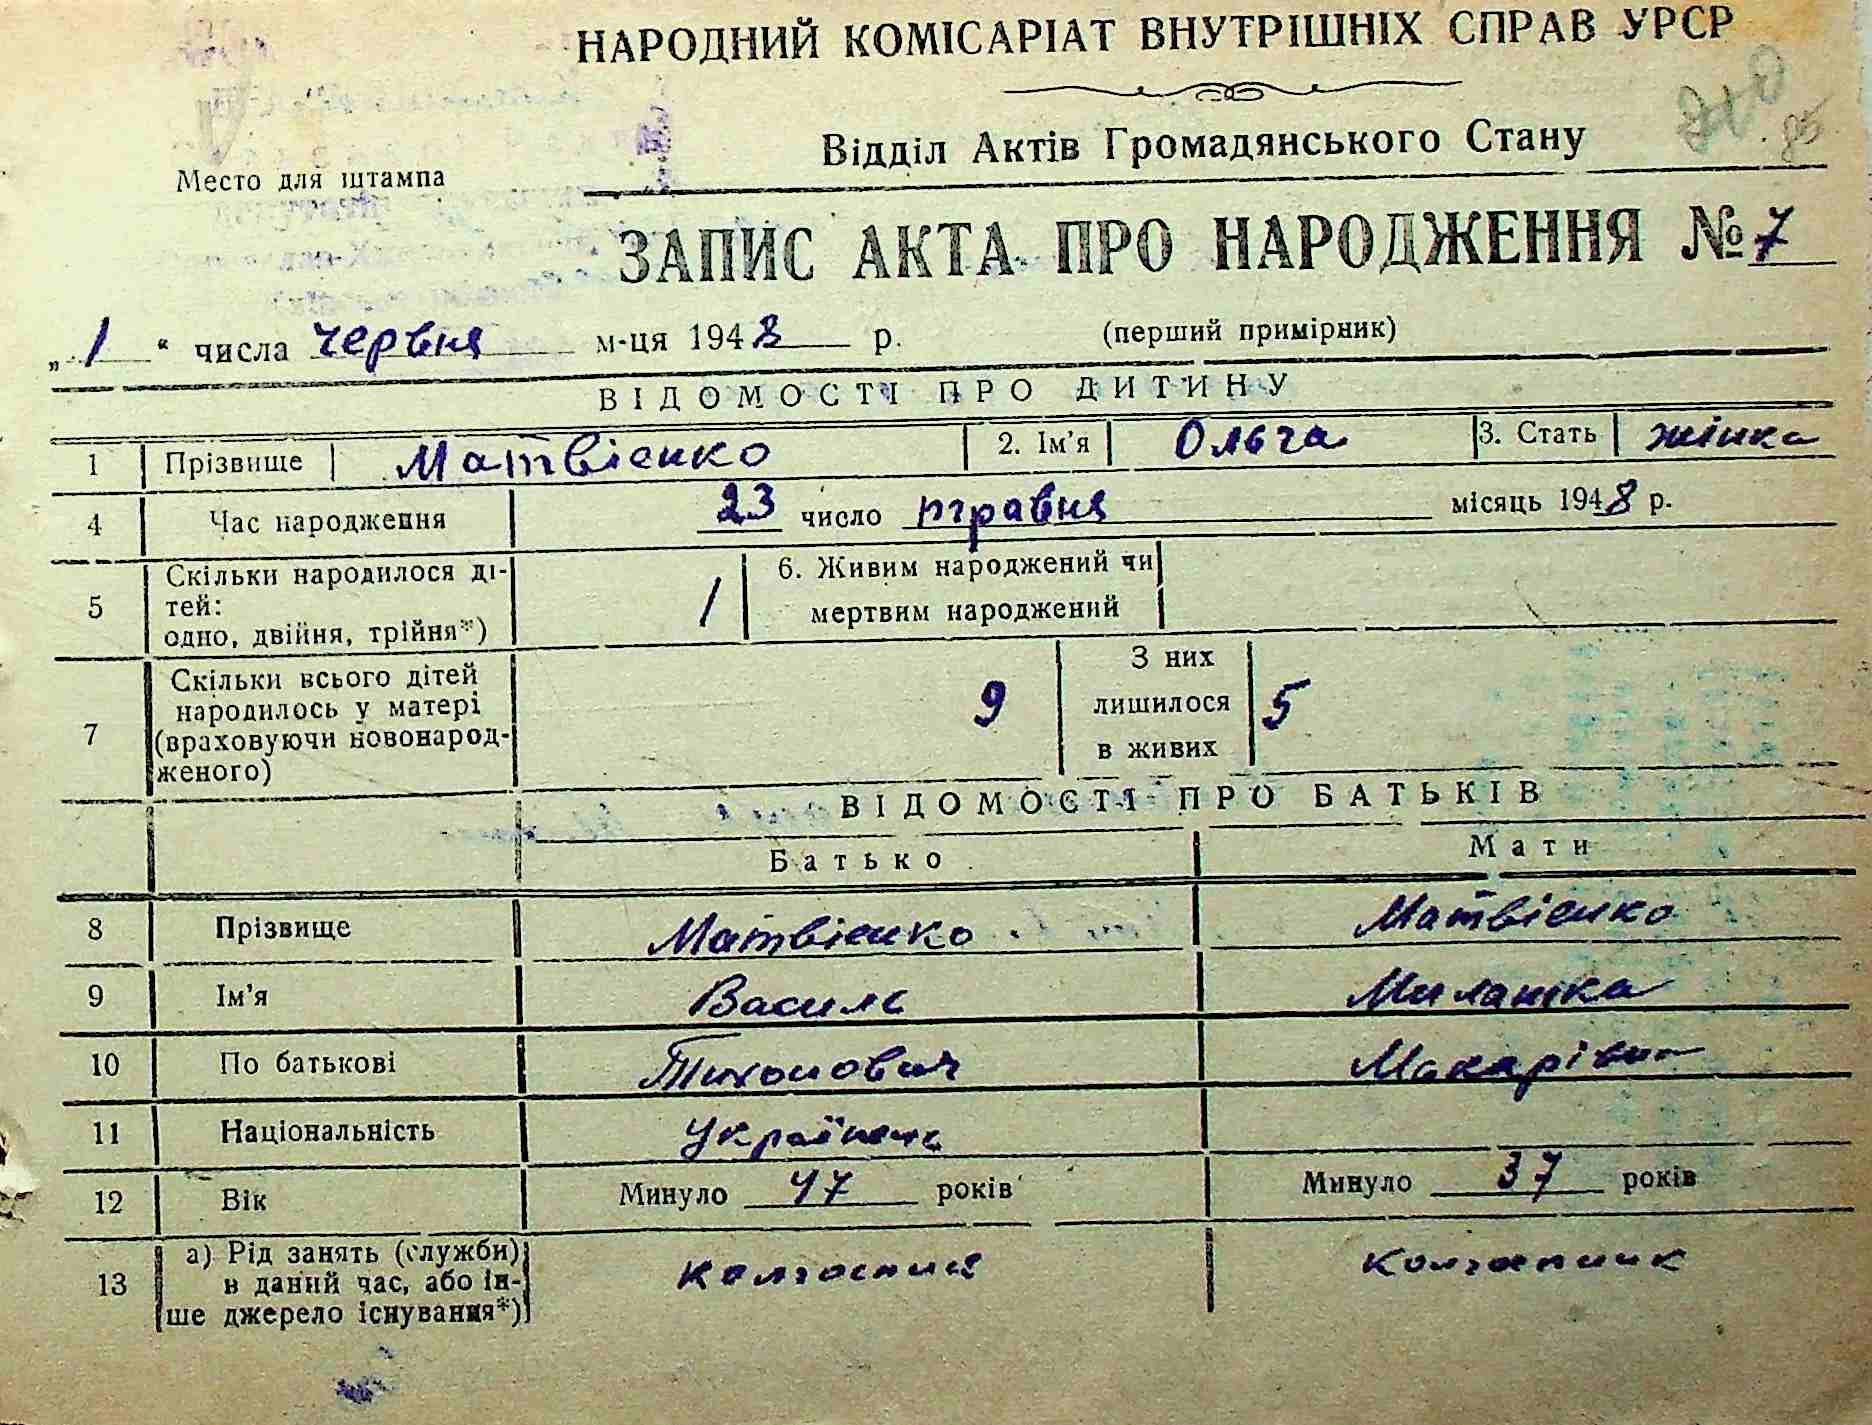 НАРОДНИЙ КОМІСАРІАТ ВНУТРІШНІХ СПРАВ УРСР
Відділ Актів Громадянського Стану
Место для штампа
ЗАПИС АКТА ПРО НАРОДЖЕННЯ № 7
„ 1 “ числа червня м-ця 1948 р. (перший примірник)
ВІДОМОСТІ ПРО ДИТИНУ
1 Прізвище Матвієнко 2. Ім'я Ольга 3. Стать жінка
4 Час народження 23 число травня місяць 1948 р.
5 Скільки народилося ді-
тей:
одно, двійня, трійня*) 1 6. Живим народжений чи
мертвим народжений
7 Скільки всього дітей
народилось у матері
(враховуючи новонарод-
женого) 9 З них
лишилося
в живих 5
ВІДОМОСТІ ПРО БАТЬКІВ
Батько Мати
8 Прізвище Матвієнко Матвієнко
9 Ім'я Василь Миланка
10 По батькові Тихонович Макарівн
11 Національність Українець
12 Вік Минуло 47 років Минуло 37 років
13 а) Рід занять (служби)
в даний час, або ін-
ше джерело існування*) колгоспник колгоспник